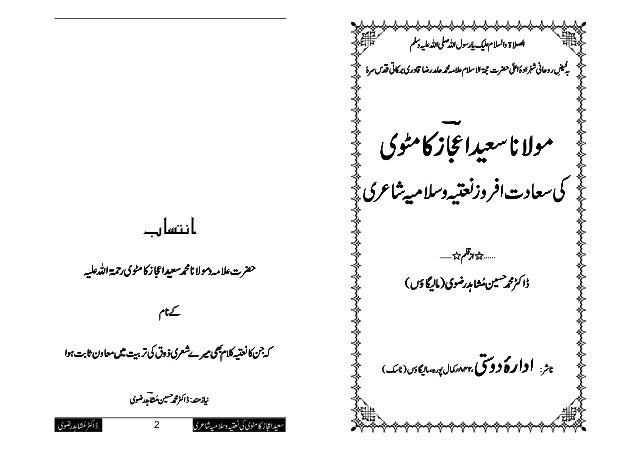 الصلاۃ والسلام علیک یا رسول اللہ صلی اللہ علیہ وسلم
بہ فیض روحانی شہزادۂ اعلیٰ حضرت حجۃ الاسلام علامہ محمد حامد رضا قادری برکاتی قدس سرہٗ
مولانا سعید اعجاز کامٹوی
کی سعادت افروز نعتیہ و سلامیہ شاعری
......☆از قلم☆......
ڈاکٹر محمد حسین مُشاہد رضوی (مالیگاؤں)
ناشر: ادارۂ دوستی ۸۴۲، کمال پورہ، مالیگاؤں (ناسک)
انتساب
حضرت علامہ و مولانا محمد سعید اعجاز کامٹوی رحمۃ اللہ علیہ
کے نام
کہ جن کا نعتیہ کلام بھی میرے شعری ذوق کی تربیت میں معاون ثابت ہوا
نیازمند: ڈاکٹر محمد حسین مُشاہد رضوی
سعید اعجاز کامٹوی کی نعتیہ و سلامیہ شاعری 2 ڈاکٹر مُشاہد رضوی